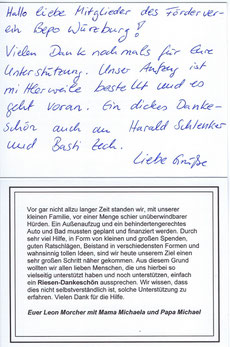 Hallo liebe Mitglieder des Förderver-
ein Bepo Würzburg!
Vielen Dank nochmals für Eure
Unterstützung. Unser Aufzug ist
mittlerweile bestellt und es
geht voran. Ein dickes Danke-
schön auch an Harald Schlenker
und Basti Zech.
Liebe Grüße
Vor gar nicht allzu langer Zeit standen wir, mit unserer
kleinen Familie, vor einer Menge schier unüberwindbarer
Hürden. Ein Außenaufzug und ein behindertengerechtes
Auto und Bad mussten geplant und finanziert werden. Durch
sehr viel Hilfe, in Form von kleinen und großen Spenden,
guten Ratschlägen, Beistand in verschiedensten Formen und
wahnsinnig tollen Ideen, sind wir heute unserem Ziel einen
sehr großen Schritt näher gekommen. Aus diesem Grund
wollten wir allen lieben Menschen, die uns hierbei so
vielseitig unterstützt haben und noch unterstützen, einfach
ein Riesen-Dankeschön aussprechen. Wir wissen, dass
dies nicht selbstverständlich ist, solche Unterstützung zu
erfahren. Vielen Dank für die Hilfe.
Euer Leon Morcher mit Mama Michaela und Papa Michael